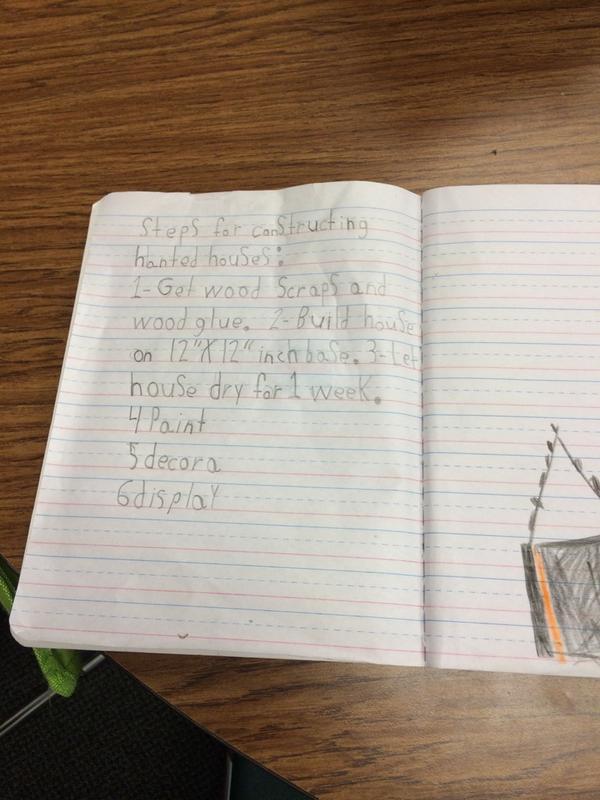 Steps for constructing
hanted houses:
1- Get wood Scraps and
wood glue. 2- Build house
on 12"X12" inch base. 3-Let
house dry for 1 week.
4 Paint
5 decora
6 display